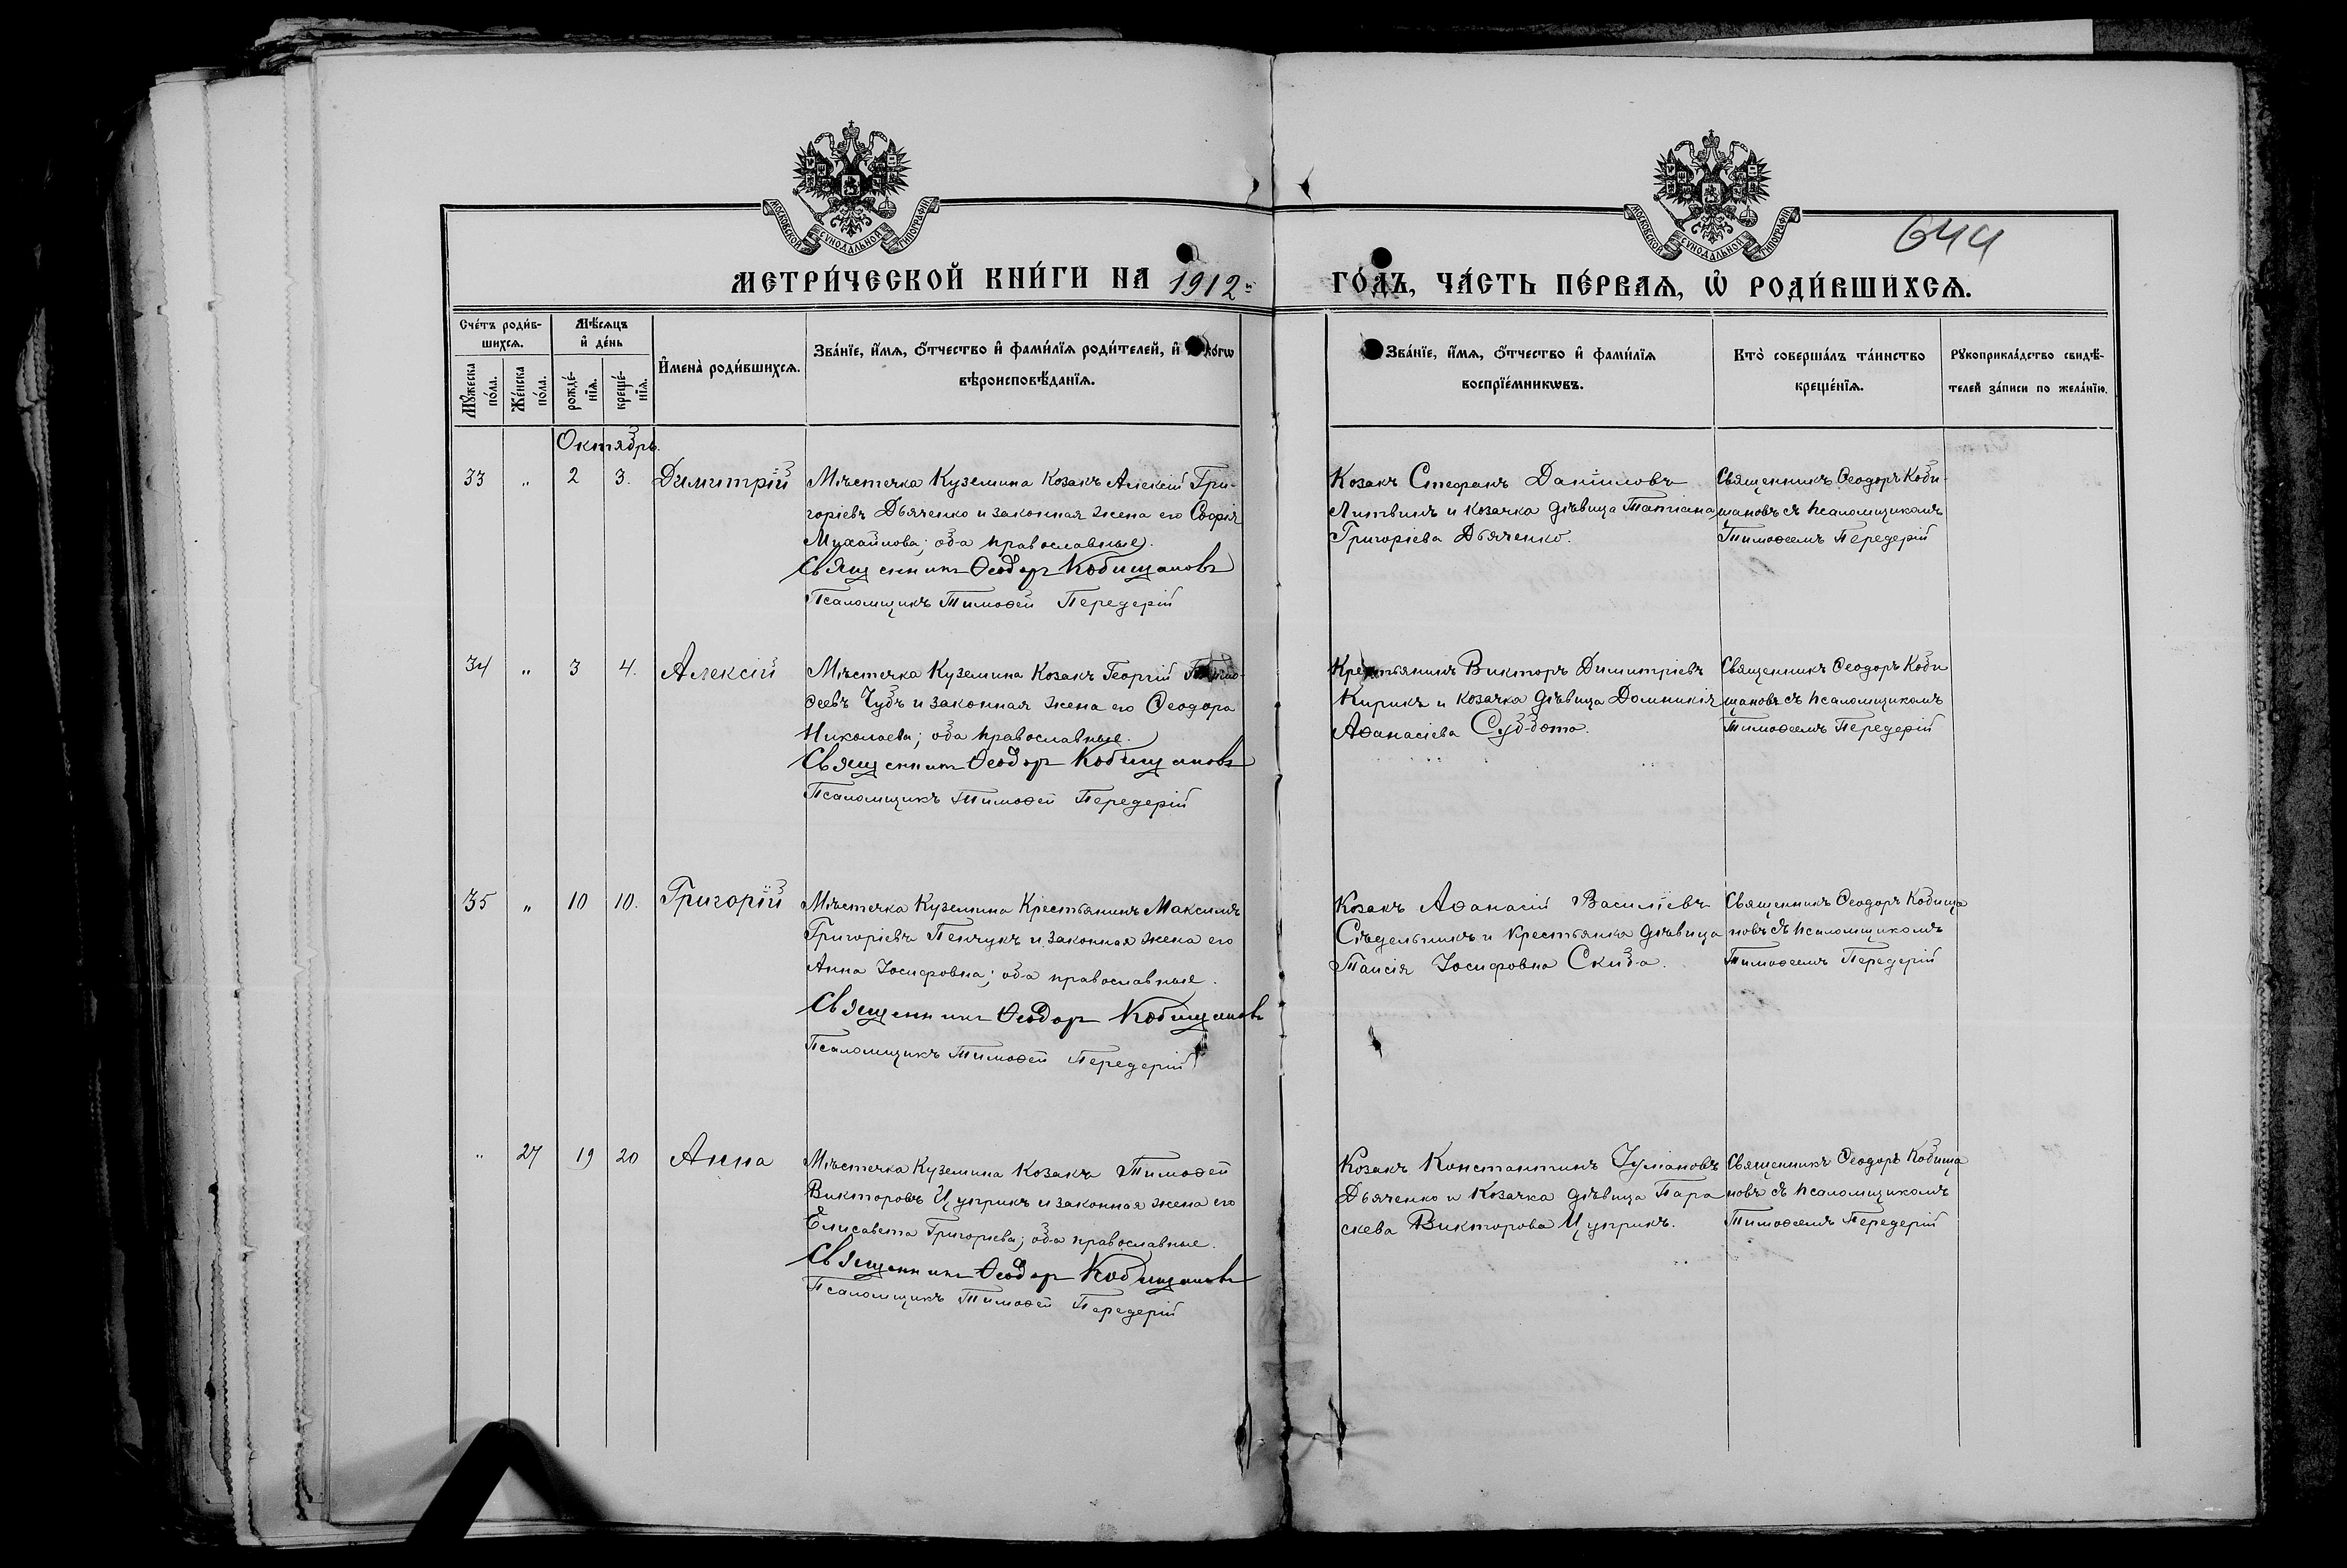 МОСКОВСКОЙ СѴНОДАЛЬНОЙ ТИПОГРАФІИ
МОСКОВСКОЙ СѴНОДАЛЬНОЙ ТИПОГРАФІИ
644
МЕТРИ́ЧЕСКОЙ КНИ́ГИ НА 1912
ГО́ДЪ, ЧА́СТЬ ПЕ́РВАѦ, Ѽ РОДИ́ВШИХСѦ.
Сче́тъ роди́в-
шихсѧ.
Мꙋ́жеска по́ла.
Же́нска по́ла.
Мѣ́сѧцъ
и҆ де́нь
рожде́-
нїѧ.
креще́-
нїѧ.
И҆мена̀ роди́вшихсѧ.
Зва́нїе, и҆́мѧ, ѻ҆́тчество и҆ фами́лїѧ роди́телей, и҆ ко́гѡ
вѣроисповѣ́данїѧ.
Зва́нїе, и҆́мѧ, ѻ҆́тчество и҆ фами́лїѧ
воспрїе́мникѡвъ.
Кто̀ соверша́лъ та́инство
креще́нїѧ.
Рꙋкоприкла́дство свидѣ́-
телей за́писи по жела́нїю.
Октябрь.
33 " 2 3. Димитрій
Мѣстечка Куземина Козакъ Алексій Гри-
горіевъ Дьяченко и законная жена его Софія
Михайлова; оба православные.
Священникъ Ѳеодоръ Кобищановъ
Псаломщикъ Тимоѳей Передерій
Козакъ Стефанъ Даніиловъ
Литвинъ и козачка дѣвица Татіана
Григоріева Дьяченко.
Священникъ Ѳеодоръ Коби-
щановъ съ псаломщикомъ
Тимоѳеемъ Передерій
34 " 3 4. Алексій
Мѣстечка Куземина Козакъ Георгій Тимо-
ѳеевъ Чубъ и законная жена его Ѳеодора
Николаева; оба православные.
Священникъ Ѳеодоръ Кобищановъ
Псаломщикъ Тимоѳей Передерій
Крестьянинъ Викторъ Димитріевъ
Кирикъ и козачка дѣвица Домникія
Аѳанасіева Суббота.
Священникъ Ѳеодоръ Коби
щановъ съ псаломщикомъ
Тимоѳеемъ Передерій
35 " 10 10. Григорій
Мѣстечка Куземина Крестьянинъ Максимъ
Григоріевъ Пенчукъ и законная жена его
Анна Іосифовна; оба православные.
Священникъ Ѳеодоръ Кобищановъ
Псаломщикъ Тимоѳей Передерій
Козакъ Аѳанасій Василіевъ
Сѣдельникъ и крестьянка дѣвица
Таисія Іосифовна Скиба.
Священникъ Ѳеодоръ Кобища
новъ съ псаломщикомъ
Тимоѳеемъ Передерій
" 27 19 20 Анна
Мѣстечка Куземина Козакъ Тимоѳей
Викторовъ Цуприкъ и законная жена его
Елисавета Григоріева; оба православные.
Священникъ Ѳеодоръ Кобищановъ
Псаломщикъ Тимоѳей Передерій
Козакъ Константинъ Іуліановъ
Дьяченко и Козачка дѣвица Пара
скева Викторова Цуприкъ.
Священникъ Ѳеодоръ Кобища
новъ съ псаломщикомъ
Тимоѳеемъ Передерій